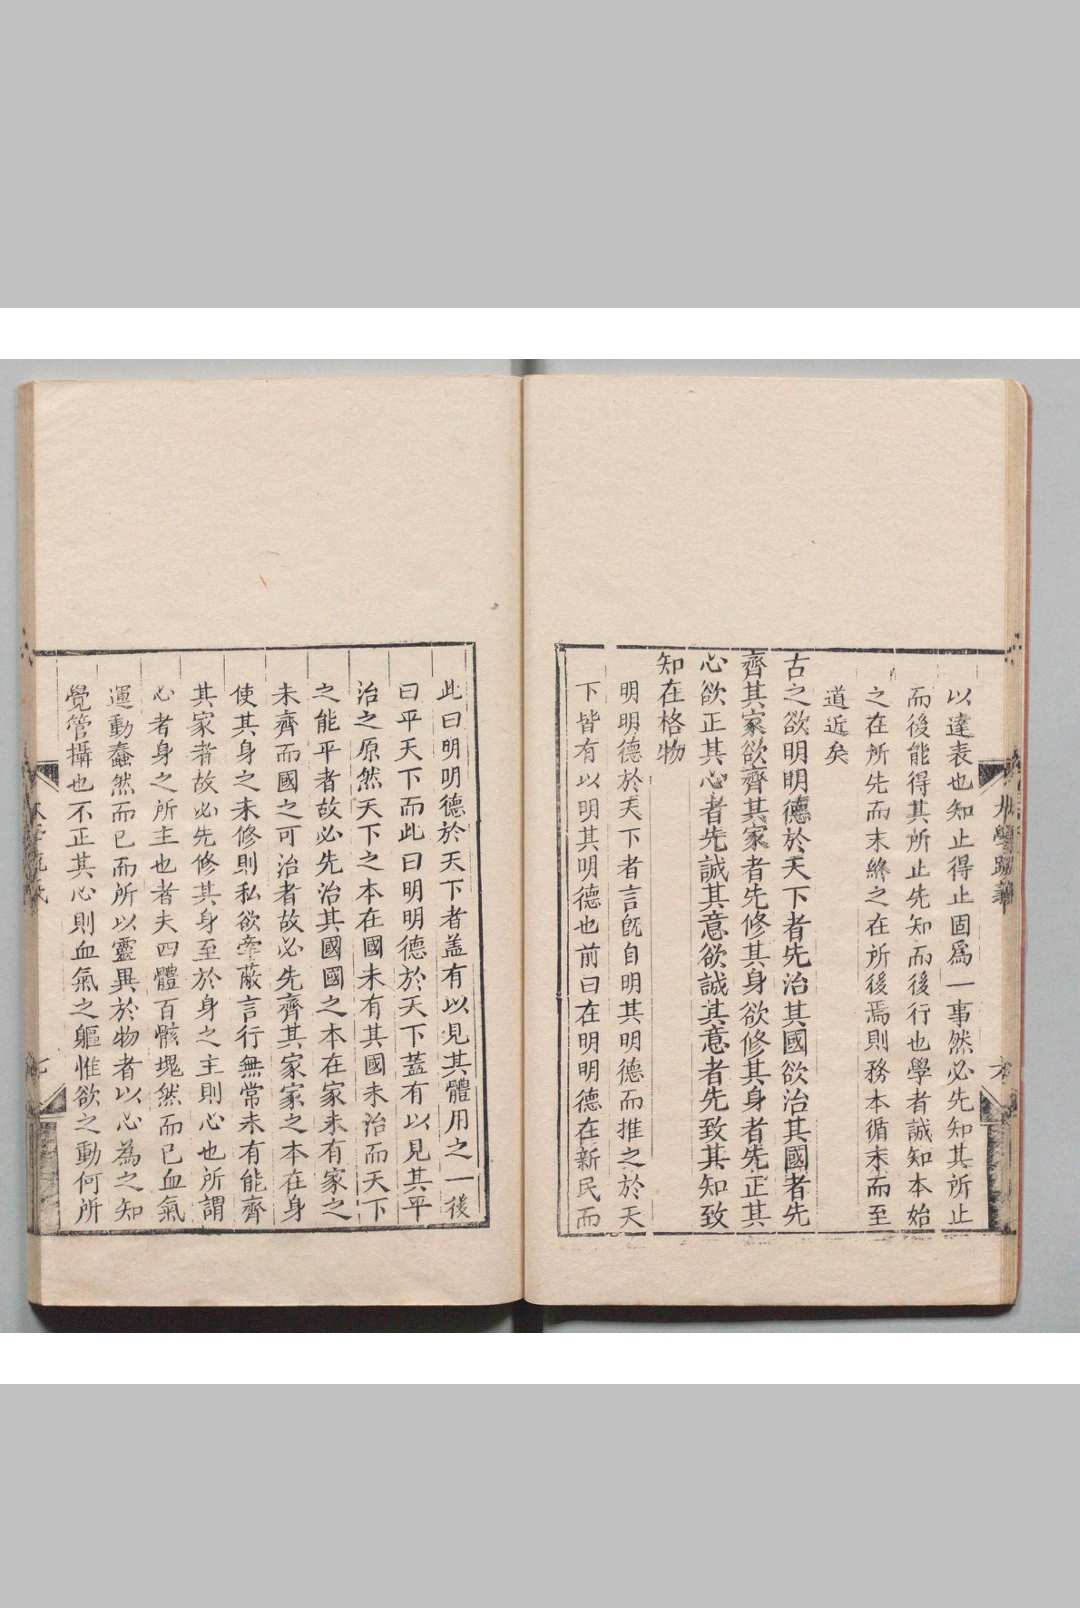 以達表也知止得止固爲一事然必先知其所止
而後能得其所止先知而後行也學者誠知本始
之在所先而末終之在所後焉則務本循末而至
道近矣
古之欲明明德於天下者先治其國欲治其國者先
齊其家欲齊其家者先修其身欲修其身者先正其
心欲正其心者先誠其意欲誠其意者先致其知致
知在格物
明明德於天下者言旣自明其明德而推之於天
下皆有以明其明德也前曰在明明德在新民而
此曰明明德於天下者盖有以見其體用之一後
曰平天下而此曰明明德於天下蓋有以見其平
治之原然天下之本在國未有其國未治而天下
之能平者故必先治其國國之本在家未有家之
未齊而國之可治者故必先齊其家家之本在身
使其身之未修則私欲牽蔽言行無常未有能齊
其家者故必先修其身至於身之主則心也所謂
心者身之所主也者夫四體百骸塊然而已血氣
運動蠢然而已而所以靈異於物者以心為之知
覺管攝也不正其心則血氣之軀惟欲之動何所